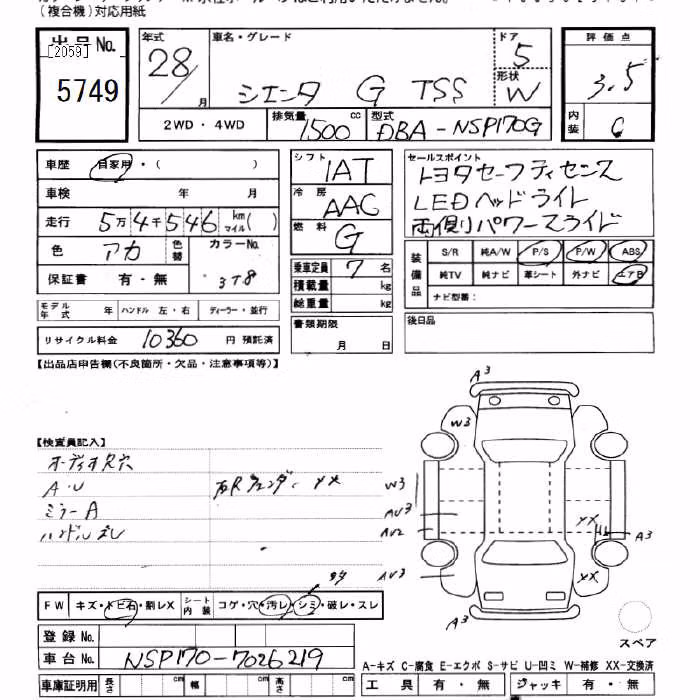 (複合機)対応用紙
出品No. [2059] 5749
年式 28/ 月
車名・グレード シエンタ G TSS
ドア 5
形状 W
評価点 3.5
内装 C
2WD・4WD
排気量 1500 cc
型式 DBA-NSP170G
車歴 自家用・( )
車検 年 月
走行 5万4千546 km マイル( )
色 アカ 色替 カラーNo. 3T8
保証書 有・無
モデル年式 年 ハンドル 左・右 ディーラー・並行
リサイクル料金 10360 円 預託済
シフト IAT
冷房 AAC
燃料 G
乗車定員 7 名
積載量 kg
総重量 kg
書類期限 月 日
セールスポイント
トヨタセーフティセンス
LEDヘッドライト
両側パワースライド
装備品 S/R 純A/W P/S P/W ABS
純TV 純ナビ 革シート 外ナビ エアB
ナビ型番:
後日品
【出品店申告欄(不良箇所・欠品・注意事項等)】
【検査員記入】
オーディオ穴
A・U
ミラーA
ハンドルズレ
右Rフェンダー XX
A3
W3
W3
AU3
AU2
AU3
XX
XX
A3
A3
スペア
FW キズ・トビ石・割レX シート内装 コゲ・穴・汚レ・シミ・破レ・スレ
登録No.
車台No. NSP170-7026219
車庫証明用 長さ cm 幅 cm 高さ cm
A-キズ C-腐食 E-エクボ S-サビ U-凹ミ W-補修 XX-交換済
工具 有・無 ジャッキ 有・無